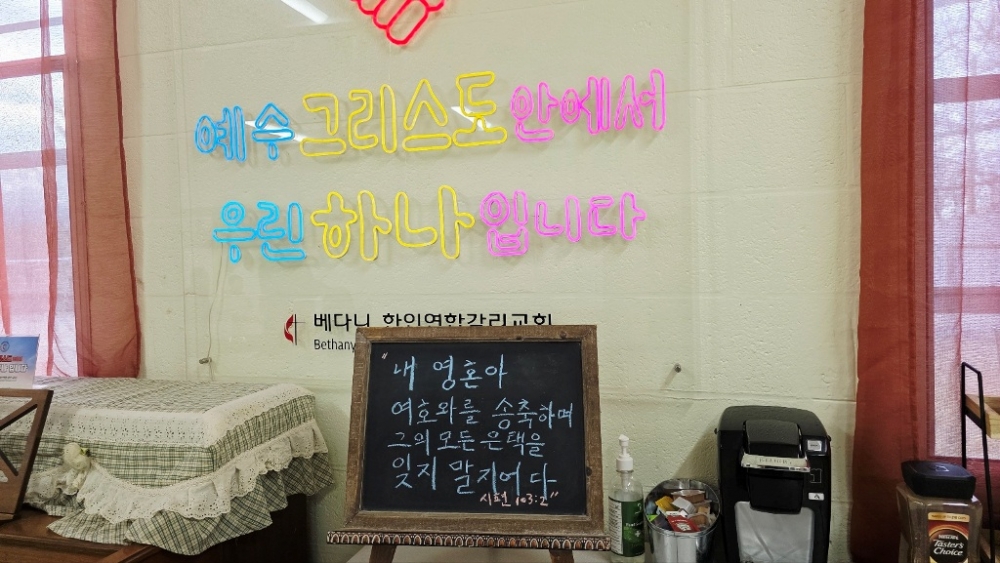 예수 그리스도 안에서
우린 하나 입니다
베다니 한인연합감리교회
Bethany
"내 영혼아
여호와를 송축하며
그의 모든 은택을
잊지 말지어다"
시편 103:2
NESCAFÉ
Taster's
Choice